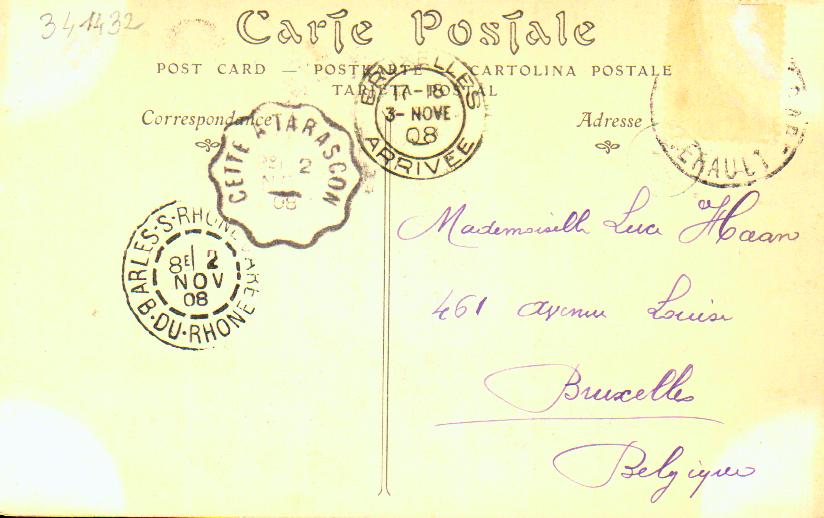 341432
Carte Postale
POST CARD — POSTKARTE — CARTOLINA POSTALE
TARJETA POSTAL
Correspondance
Adresse
BRUXELLES
17-18
3- NOVE
08
ARRIVÉE
CETTE A TARASCON
2
08
ARLES-S-RHONE GARE
8E 2
NOV
08
B-DU-RHONE
HERAULT
Mademoiselle Luce Haan
461 avenue Louise
Bruxelles
Belgique